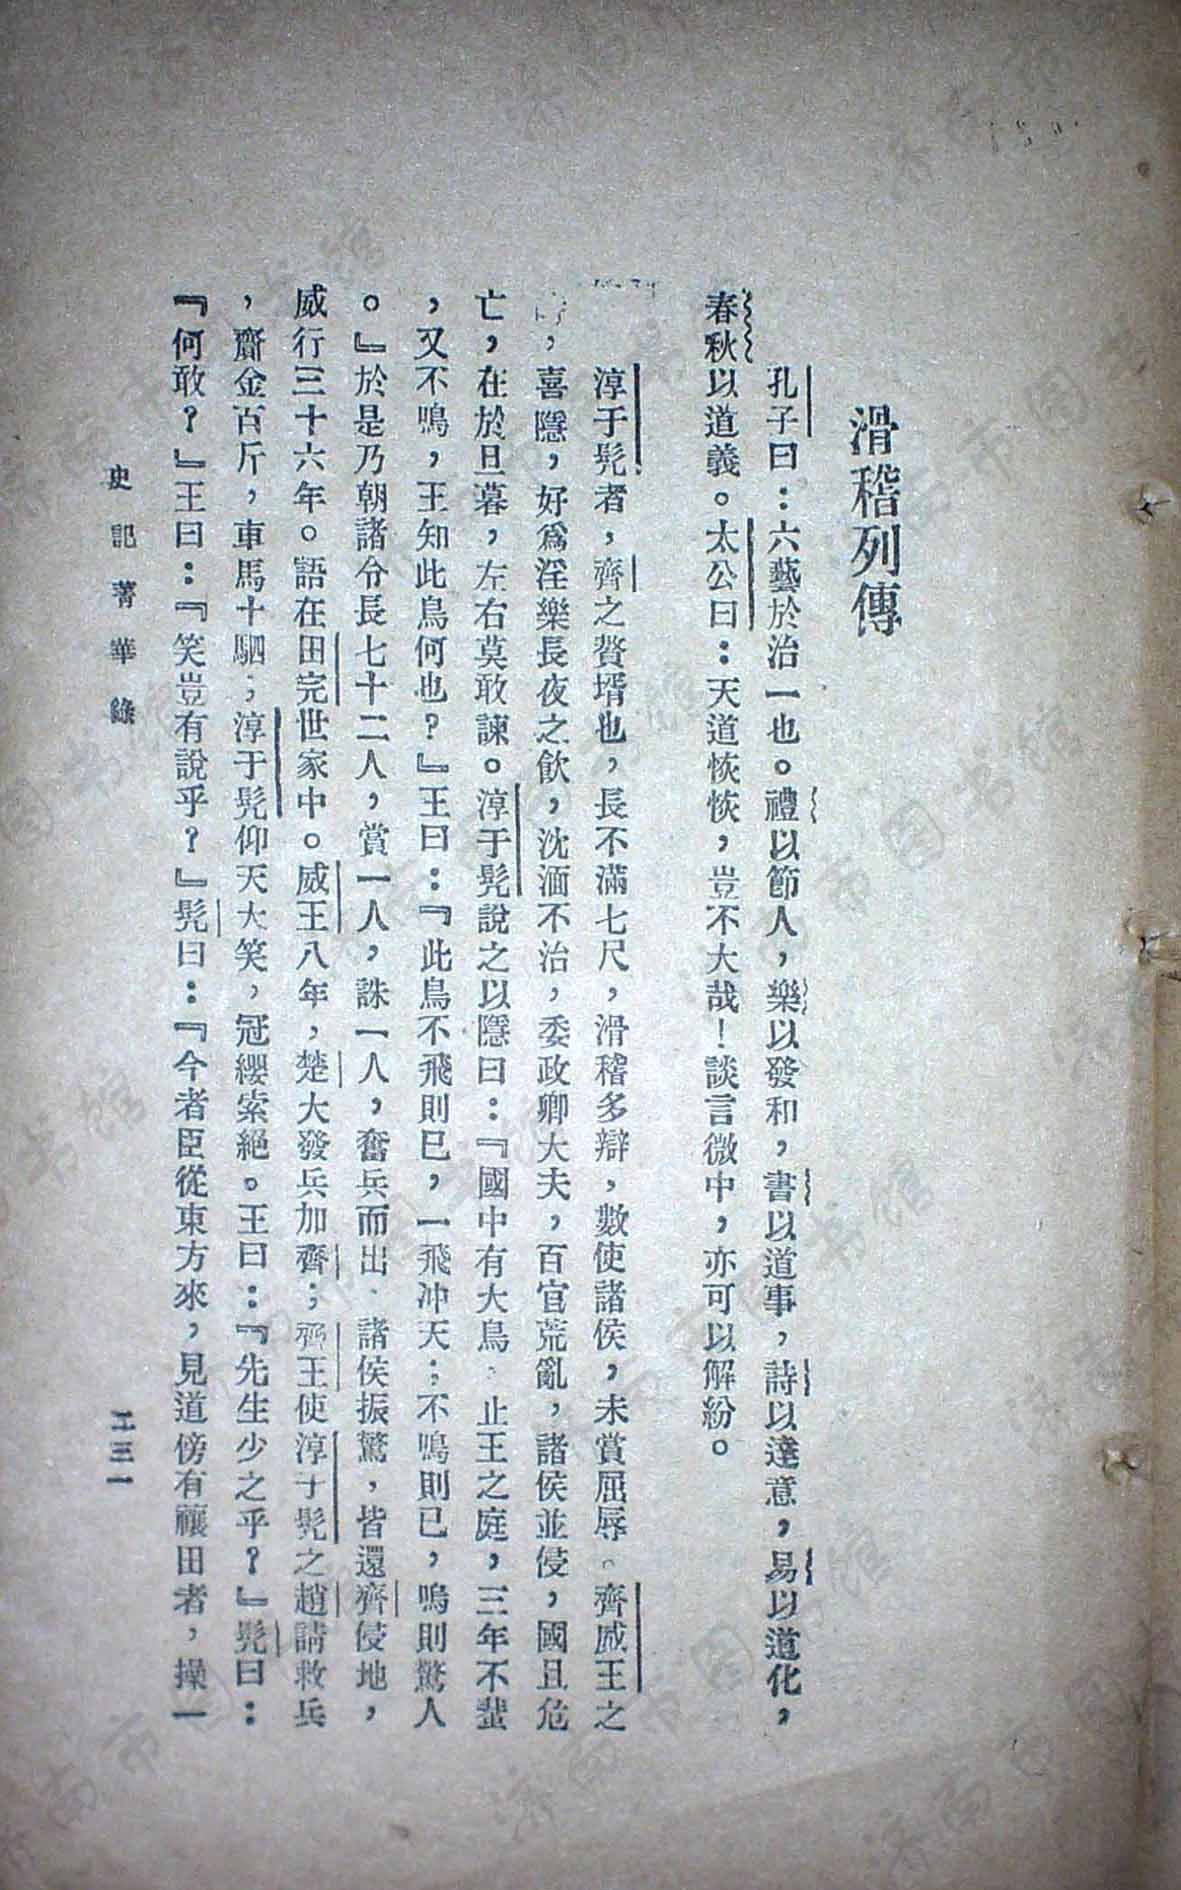 滑稽列傳
孔子曰：六藝於治一也。禮以節人，樂以發和，書以道事，詩以達意，易以道化，
春秋以道義。太公曰：天道恢恢，豈不大哉！談言微中，亦可以解紛。
淳于髡者，齊之贅壻也，長不滿七尺，滑稽多辯，數使諸侯，未嘗屈辱。齊威王之
，喜隱，好爲淫樂長夜之飲，沈湎不治，委政卿大夫，百官荒亂，諸侯並侵，國且危
亡，在於旦暮，左右莫敢諫。淳于髡說之以隱曰：『國中有大鳥，止王之庭，三年不蜚
，又不鳴，王知此鳥何也？』王曰：『此鳥不飛則已，一飛沖天；不鳴則已，鳴則驚人
。』於是乃朝諸令長七十二人，賞一人，誅一人，奮兵而出，諸侯振驚，皆還齊侵地，
威行三十六年。語在田完世家中。威王八年，楚大發兵加齊；齊王使淳于髡之趙請救兵
，齎金百斤，車馬十駟；淳于髡仰天大笑，冠纓索絕。王曰：『先生少之乎？』髡曰：
『何敢？』王曰：『笑豈有說乎？』髡曰：『今者臣從東方來，見道傍有禳田者，操一
史記菁華錄
二三一
济南市图书馆